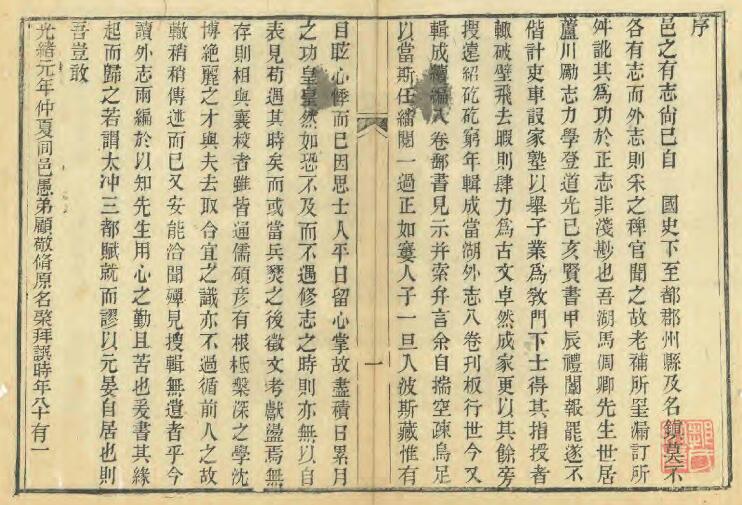 序
邑之有志尚已自　國史下至都郡州縣及名鎮莫不
各有志而外志則采之稗官聞之故老補所罣漏訂所
舛訛其為功於正志非淺尠也吾湖馬侗卿先生世居
蘆川勵志力學登道光己亥賢書甲辰禮闈報罷遂不
偕計吏車設家塾以舉子業為敎門下士得其指授者
輙破壁飛去暇則肆力為古文卓然成家更以其餘旁
搜遠紹矻矻窮年輯成當湖外志八卷刋板行世今又
輯成續編八卷郵書見示并索弁言余自揣空疎烏足
以當斯任繙閱一過正如窶人子一旦入波斯藏惟有
目眩心悸而已因思士人平日留心掌故盡積日累月
之功皇皇然如恐不及而不遇修志之時則亦無以自
表見苟遇其時矣而或當兵燹之後徵文考獻盪焉無
存則相與襄校者雖皆通儒碩彦有根柢槃深之學沈
博絶麗之才與夫去取合宜之識亦不過循前人之故
轍稍稍傳述而已又安能洽聞殫見搜輯無遺者乎今
讀外志兩編於以知先生用心之勤且苦也爰書其緣
起而歸之若謂太冲三都賦就而謬以元晏自居也則
吾豈敢
光緒元年仲夏同邑愚弟顧敬脩原名榮拜譔時年八十有一
一